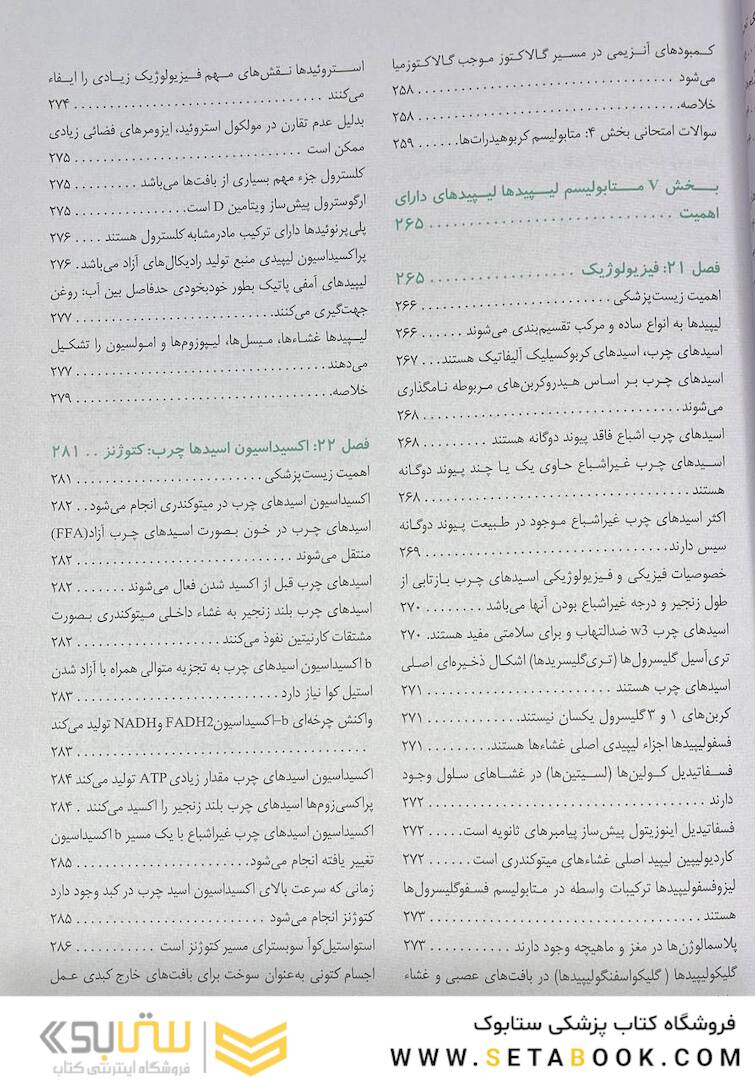 کمبودهای آنزیمی در مسیر گالاکتوز موجب گالاکتوزمیا
می‌شود . . . . . . . . . . . . . . . . . . . . . . . . . . . . . . . . . ۲۵۸
خلاصه. . . . . . . . . . . . . . . . . . . . . . . . . . . . . . . . . ۲۵۸
سوالات امتحانی بخش ۴: متابولیسم کربوهیدرات‌ها. . . . . . ۲۵۹
بخش V متابولیسم لیپیدها لیپیدهای دارای
اهمیت . . . . . . . . . . . . . . . . . . . . . . . . . . . . . ۲۶۵
فصل ۲۱: فیزیولوژیک . . . . . . . . . . . . . . . . . . ۲۶۵
اهمیت زیست‌پزشکی . . . . . . . . . . . . . . . . . . . . . . . . ۲۶۶
لیپیدها به انواع ساده و مرکب تقسیم‌بندی می‌شوند . . . . . . ۲۶۶
اسیدهای چرب، اسیدهای کربوکسیلیک آلیفاتیک هستند. . . ۲۶۷
اسیدهای چرب بر اساس هیدروکربن‌های مربوطه نامگذاری
می‌شوند . . . . . . . . . . . . . . . . . . . . . . . . . . . . . . . . . ۲۶۸
اسیدهای چرب اشباع فاقد پیوند دوگانه هستند . . . . . . . . . ۲۶۸
اسیدهای چرب غیراشباع حاوی یک یا چند پیوند دوگانه
هستند . . . . . . . . . . . . . . . . . . . . . . . . . . . . . . . . . ۲۶۸
اکثر اسیدهای چرب غیراشباع موجود در طبیعت پیوند دوگانه
سیس دارند. . . . . . . . . . . . . . . . . . . . . . . . . . . . . . ۲۶۹
خصوصیات فیزیکی و فیزیولوژیکی اسیدهای چرب بازتابی از
طول زنجیر و درجه غیراشباع بودن آنها می‌باشد . . . . . . . . ۲۷۰
اسیدهای چرب w3 ضدالتهاب و برای سلامتی مفید هستند. ۲۷۰
تری‌آسیل گلیسرول‌ها (تری‌گلیسریدها) اشکال ذخیره‌ای اصلی
اسیدهای چرب هستند . . . . . . . . . . . . . . . . . . . . . . . ۲۷۱
کربن‌های ۱ و ۳ گلیسرول یکسان نیستند. . . . . . . . . . . . . ۲۷۱
فسفولیپیدها اجزاء لیپیدی اصلی غشاءها هستند. . . . . . . . . ۲۷۱
فسفاتیدیل کولین‌ها (لسیتین‌ها) در غشاهای سلول وجود
دارند . . . . . . . . . . . . . . . . . . . . . . . . . . . . . . . . . . ۲۷۲
فسفاتیدیل اینوزیتول پیش‌ساز پیامبرهای ثانویه است. . . . . ۲۷۲
کاردیولیپین لیپید اصلی غشاءهای میتوکندری است . . . . . . ۲۷۲
لیزوفسفولیپیدها ترکیبات واسطه در متابولیسم فسفوگلیسرول‌ها
هستند . . . . . . . . . . . . . . . . . . . . . . . . . . . . . . . . . ۲۷۳
پلاسمالوژن‌ها در مغز و ماهیچه وجود دارند . . . . . . . . . . . ۲۷۳
گلیکولیپیدها ( گلیکواسفنگولیپیدها) در بافت‌های عصبی و غشاء
استروئیدها نقش‌های مهم فیزیولوژیک زیادی را ایفاء
می‌کنند . . . . . . . . . . . . . . . . . . . . . . . . . . . . . . . . ۲۷۴
بدلیل عدم تقارن در مولکول استروئید، ایزومرهای فضائی زیادی
ممکن است . . . . . . . . . . . . . . . . . . . . . . . . . . . . . ۲۷۵
کلسترول جزء مهم بسیاری از بافت‌ها می‌باشد . . . . . . . . . ۲۷۵
ارگوسترول پیش‌ساز ویتامین D است. . . . . . . . . . . . . . . ۲۷۵
پلی‌پرنوئیدها دارای ترکیب مادرمشابه کلسترول هستند . . . . ۲۷۶
پراکسیداسیون لیپیدی منبع تولید رادیکال‌های آزاد می‌باشد. ۲۷۶
لیپیدهای آمفی پاتیک بطور خودبخودی حدفاصل بین آب: روغن
جهت‌گیری می‌کنند. . . . . . . . . . . . . . . . . . . . . . . . . ۲۷۷
لیپیدها غشاءها، میسل‌ها، لیپوزوم‌ها و امولسیون را تشکیل
می‌دهند . . . . . . . . . . . . . . . . . . . . . . . . . . . . . . . . ۲۷۷
خلاصه. . . . . . . . . . . . . . . . . . . . . . . . . . . . . . . . . ۲۷۹
فصل ۲۲: اکسیداسیون اسیدها چرب: کتوژنز . . ۲۸۱
اهمیت زیست‌پزشکی . . . . . . . . . . . . . . . . . . . . . . . . ۲۸۱
اکسیداسیون اسیدهای چرب در میتوکندری انجام می‌شود . . ۲۸۲
اسیدهای چرب در خون بصورت اسیدهای چرب آزاد(FFA)
منتقل می‌شوند . . . . . . . . . . . . . . . . . . . . . . . . . . . ۲۸۲
اسیدهای چرب قبل از اکسید شدن فعال می‌شوند . . . . . . . ۲۸۲
اسیدهای چرب بلند زنجیر به غشاء داخلی میتوکندری بصورت
مشتقات کارنیتین نفوذ می‌کنند . . . . . . . . . . . . . . . . . . ۲۸۲
b اکسیداسیون اسیدهای چرب به تجزیه متوالی همراه با آزاد شدن
استیل کوا نیاز دارد . . . . . . . . . . . . . . . . . . . . . . . . . ۲۸۳
واکنش چرخه‌ای b–اکسیداسیونFADH2 وNADH تولید می‌کند
. . . . . . . . . . . . . . . . . . . . . . . . . . . . . . . . . . . . . . . ۲۸۳
اکسیداسیون اسیدهای چرب مقدار زیادی ATP تولید می‌کند ۲۸۴
پراکسی‌زوم‌ها اسیدهای چرب بلند زنجیر را اکسید می‌کنند . ۲۸۴
اکسیداسیون اسیدهای چرب غیراشباع با یک مسیر b اکسیداسیون
تغییر یافته انجام می‌شود. . . . . . . . . . . . . . . . . . . . . . ۲۸۵
زمانی که سرعت بالای اکسیداسیون اسید چرب در کبد وجود دارد
کتوژنز انجام می‌شود . . . . . . . . . . . . . . . . . . . . . . . . ۲۸۵
استواستیل‌کوآ سوبسترای مسیر کتوژنز است . . . . . . . . . . . ۲۸۶
اجسام کتونی به‌عنوان سوخت برای بافت‌های خارج کبدی عمل
فروشگاه کتاب پزشکی ستابوک
WWW.SETABOOK.COM
ستابوک
فروشگاه اینترنتی کتاب